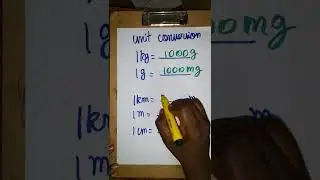 unit conversion
1kg = 1000g
1g = 1000mg
1km = m
1m =
1cm =